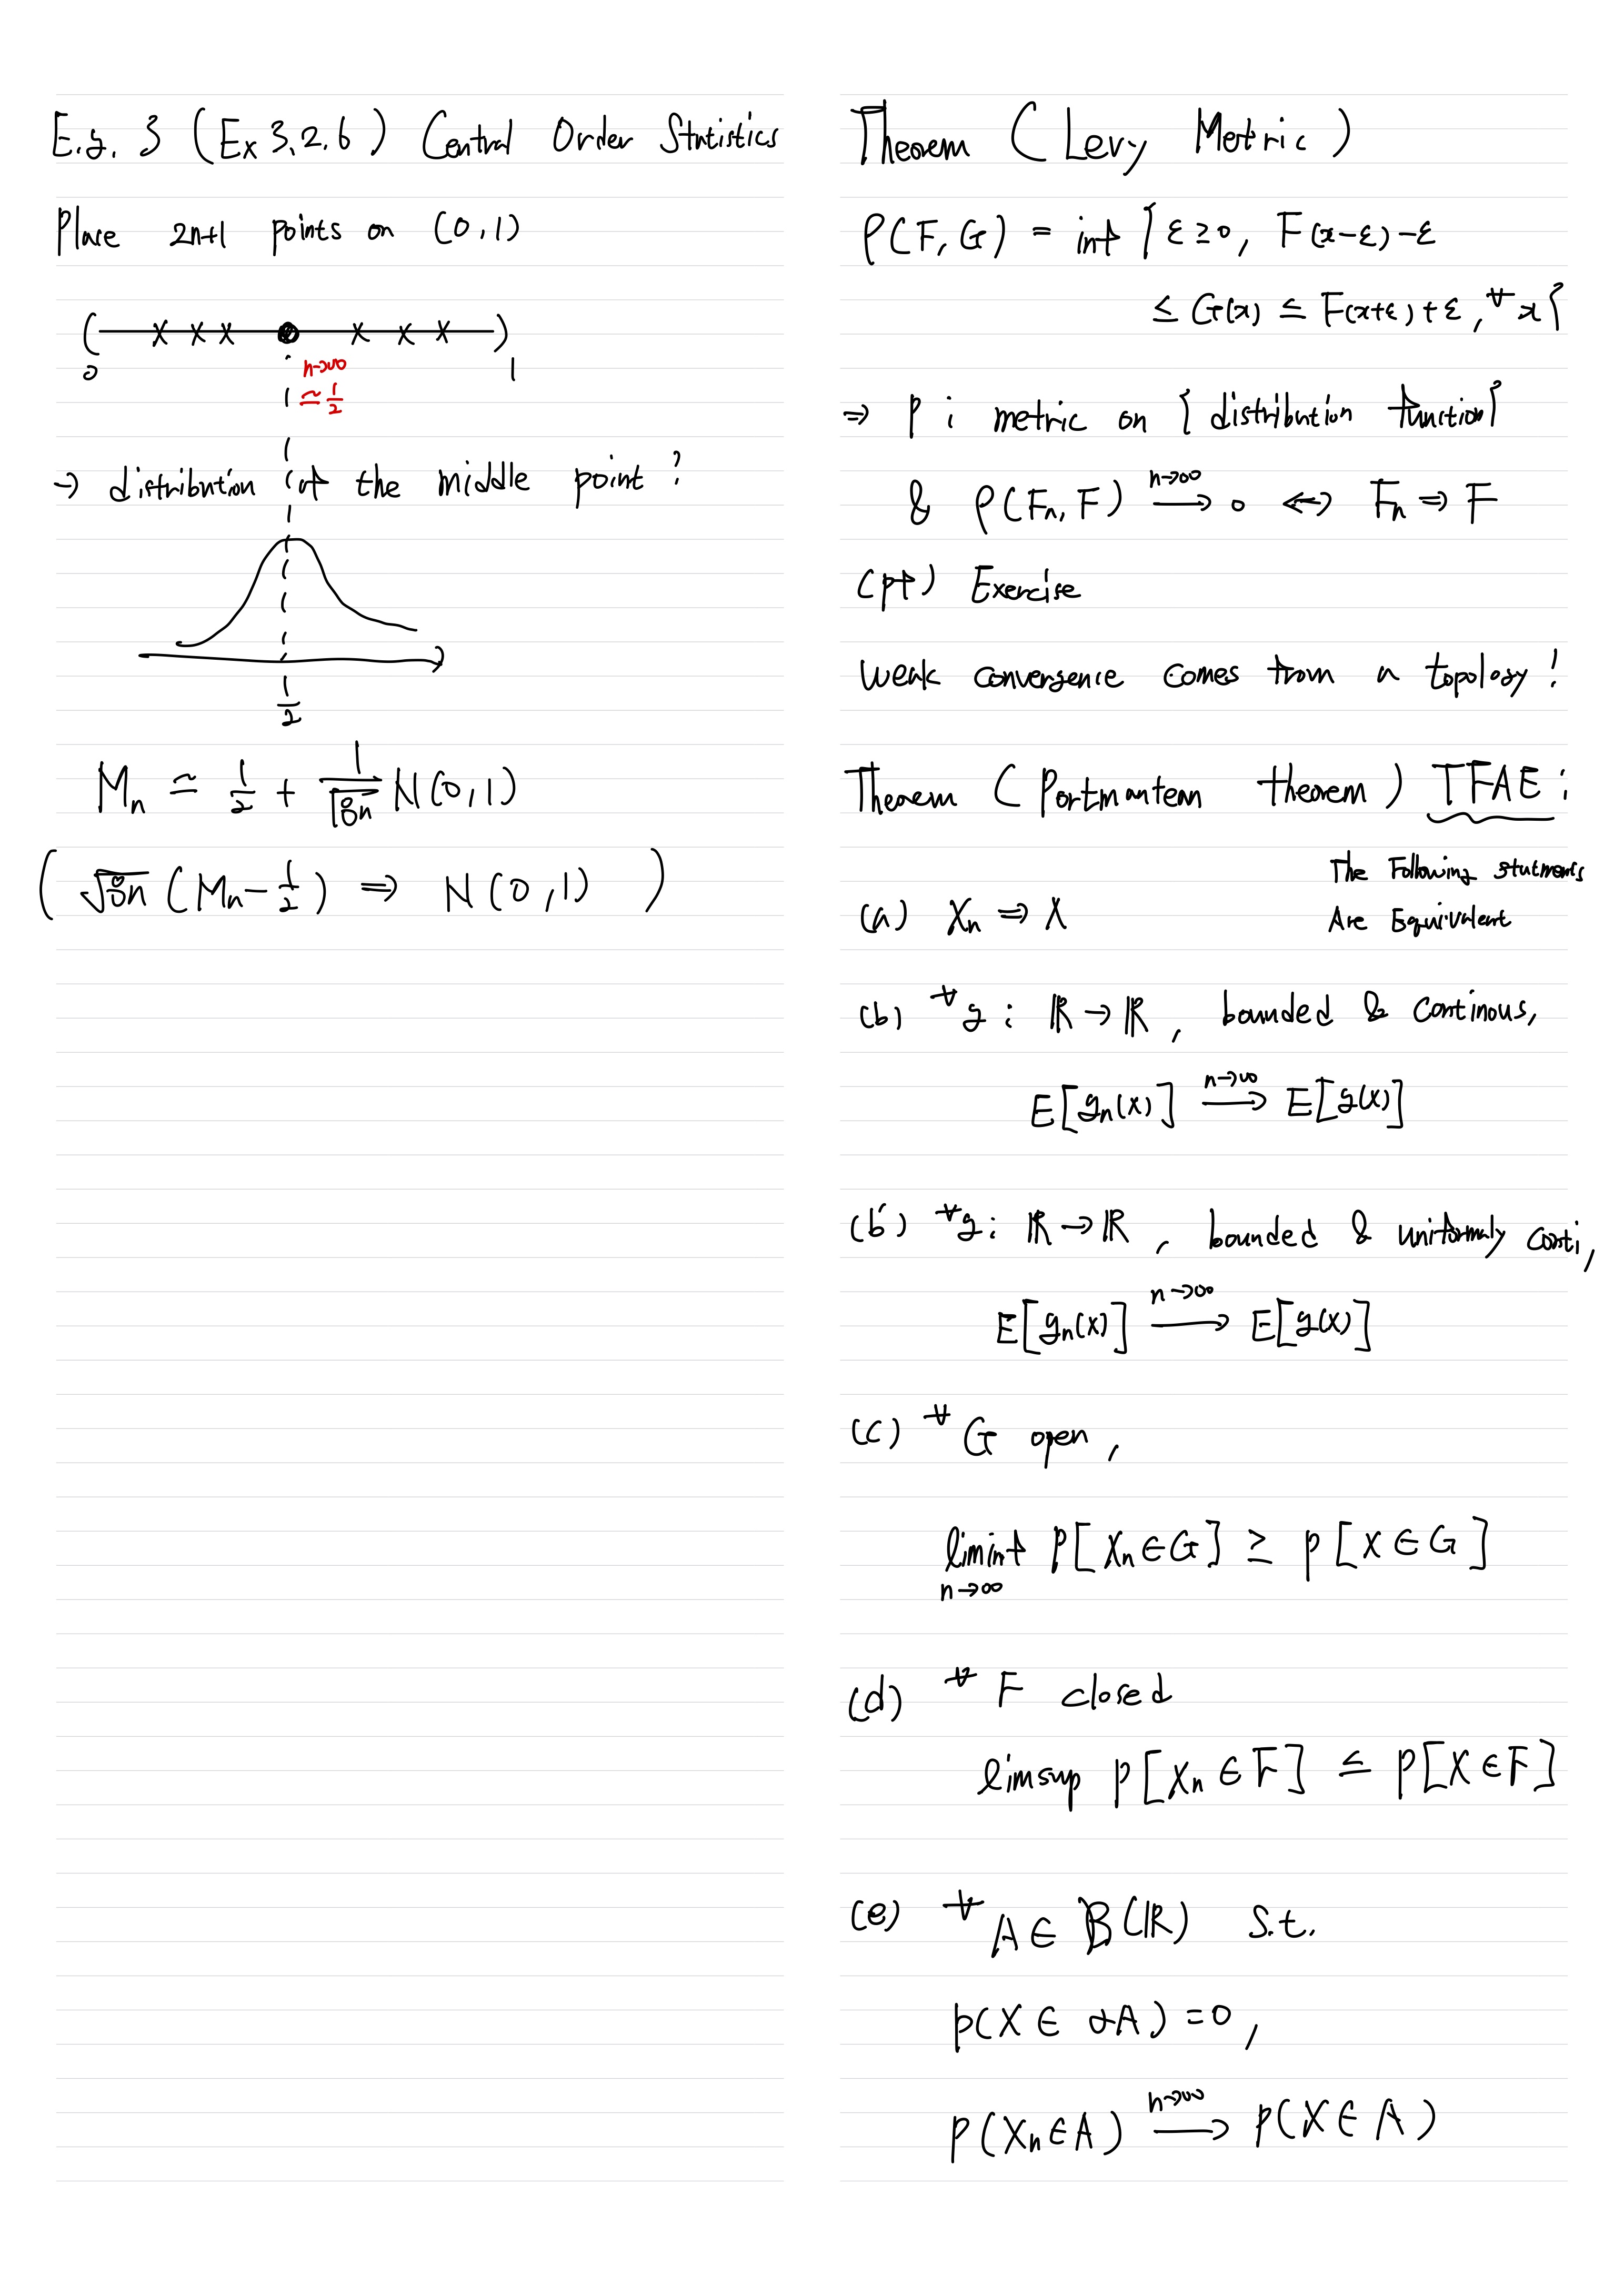 E.g. 3 (Ex 3.2.6) Central Order Statistics
Place 2n+1 points on (0,1)
0 1
n→∞
≃ 1/2
→ distribution of the middle point?
1/2
M_n ≃ 1/2 + 1/√8n N(0,1)
( √8n (M_n - 1/2) ⇒ N(0,1) )
Theorem (Levy Metric)
ρ(F, G) = inf { ε ≥ 0, F(x-ε) - ε
≤ G(x) ≤ F(x+ε) + ε, ∀x }
⇒ ρ : metric on { distribution function }
& ρ(F_n, F) →^{n→∞} 0 ↔ F_n ⇒ F
(pf) Exercise
Weak convergence comes from a topology!
Theorem (Portmanteau theorem) TFAE:
The Following statments
Are Equivalent
(a) X_n ⇒ X
(b) ∀g : ℝ → ℝ, bounded & continous,
E[g_n(x)] →^{n→∞} E[g(x)]
(b') ∀g : ℝ → ℝ, bounded & uniformaly conti,
E[g_n(x)] →^{n→∞} E[g(x)]
(c) ∀G open,
liminf P[X_n ∈ G] ≥ P[X ∈ G]
n→∞
(d) ∀F closed
limsup P[X_n ∈ F] ≤ P[X ∈ F]
(e) ∀A ∈ B(ℝ) s.t.
P(X ∈ ∂A) = 0,
P(X_n ∈ A) →^{n→∞} P(X ∈ A)